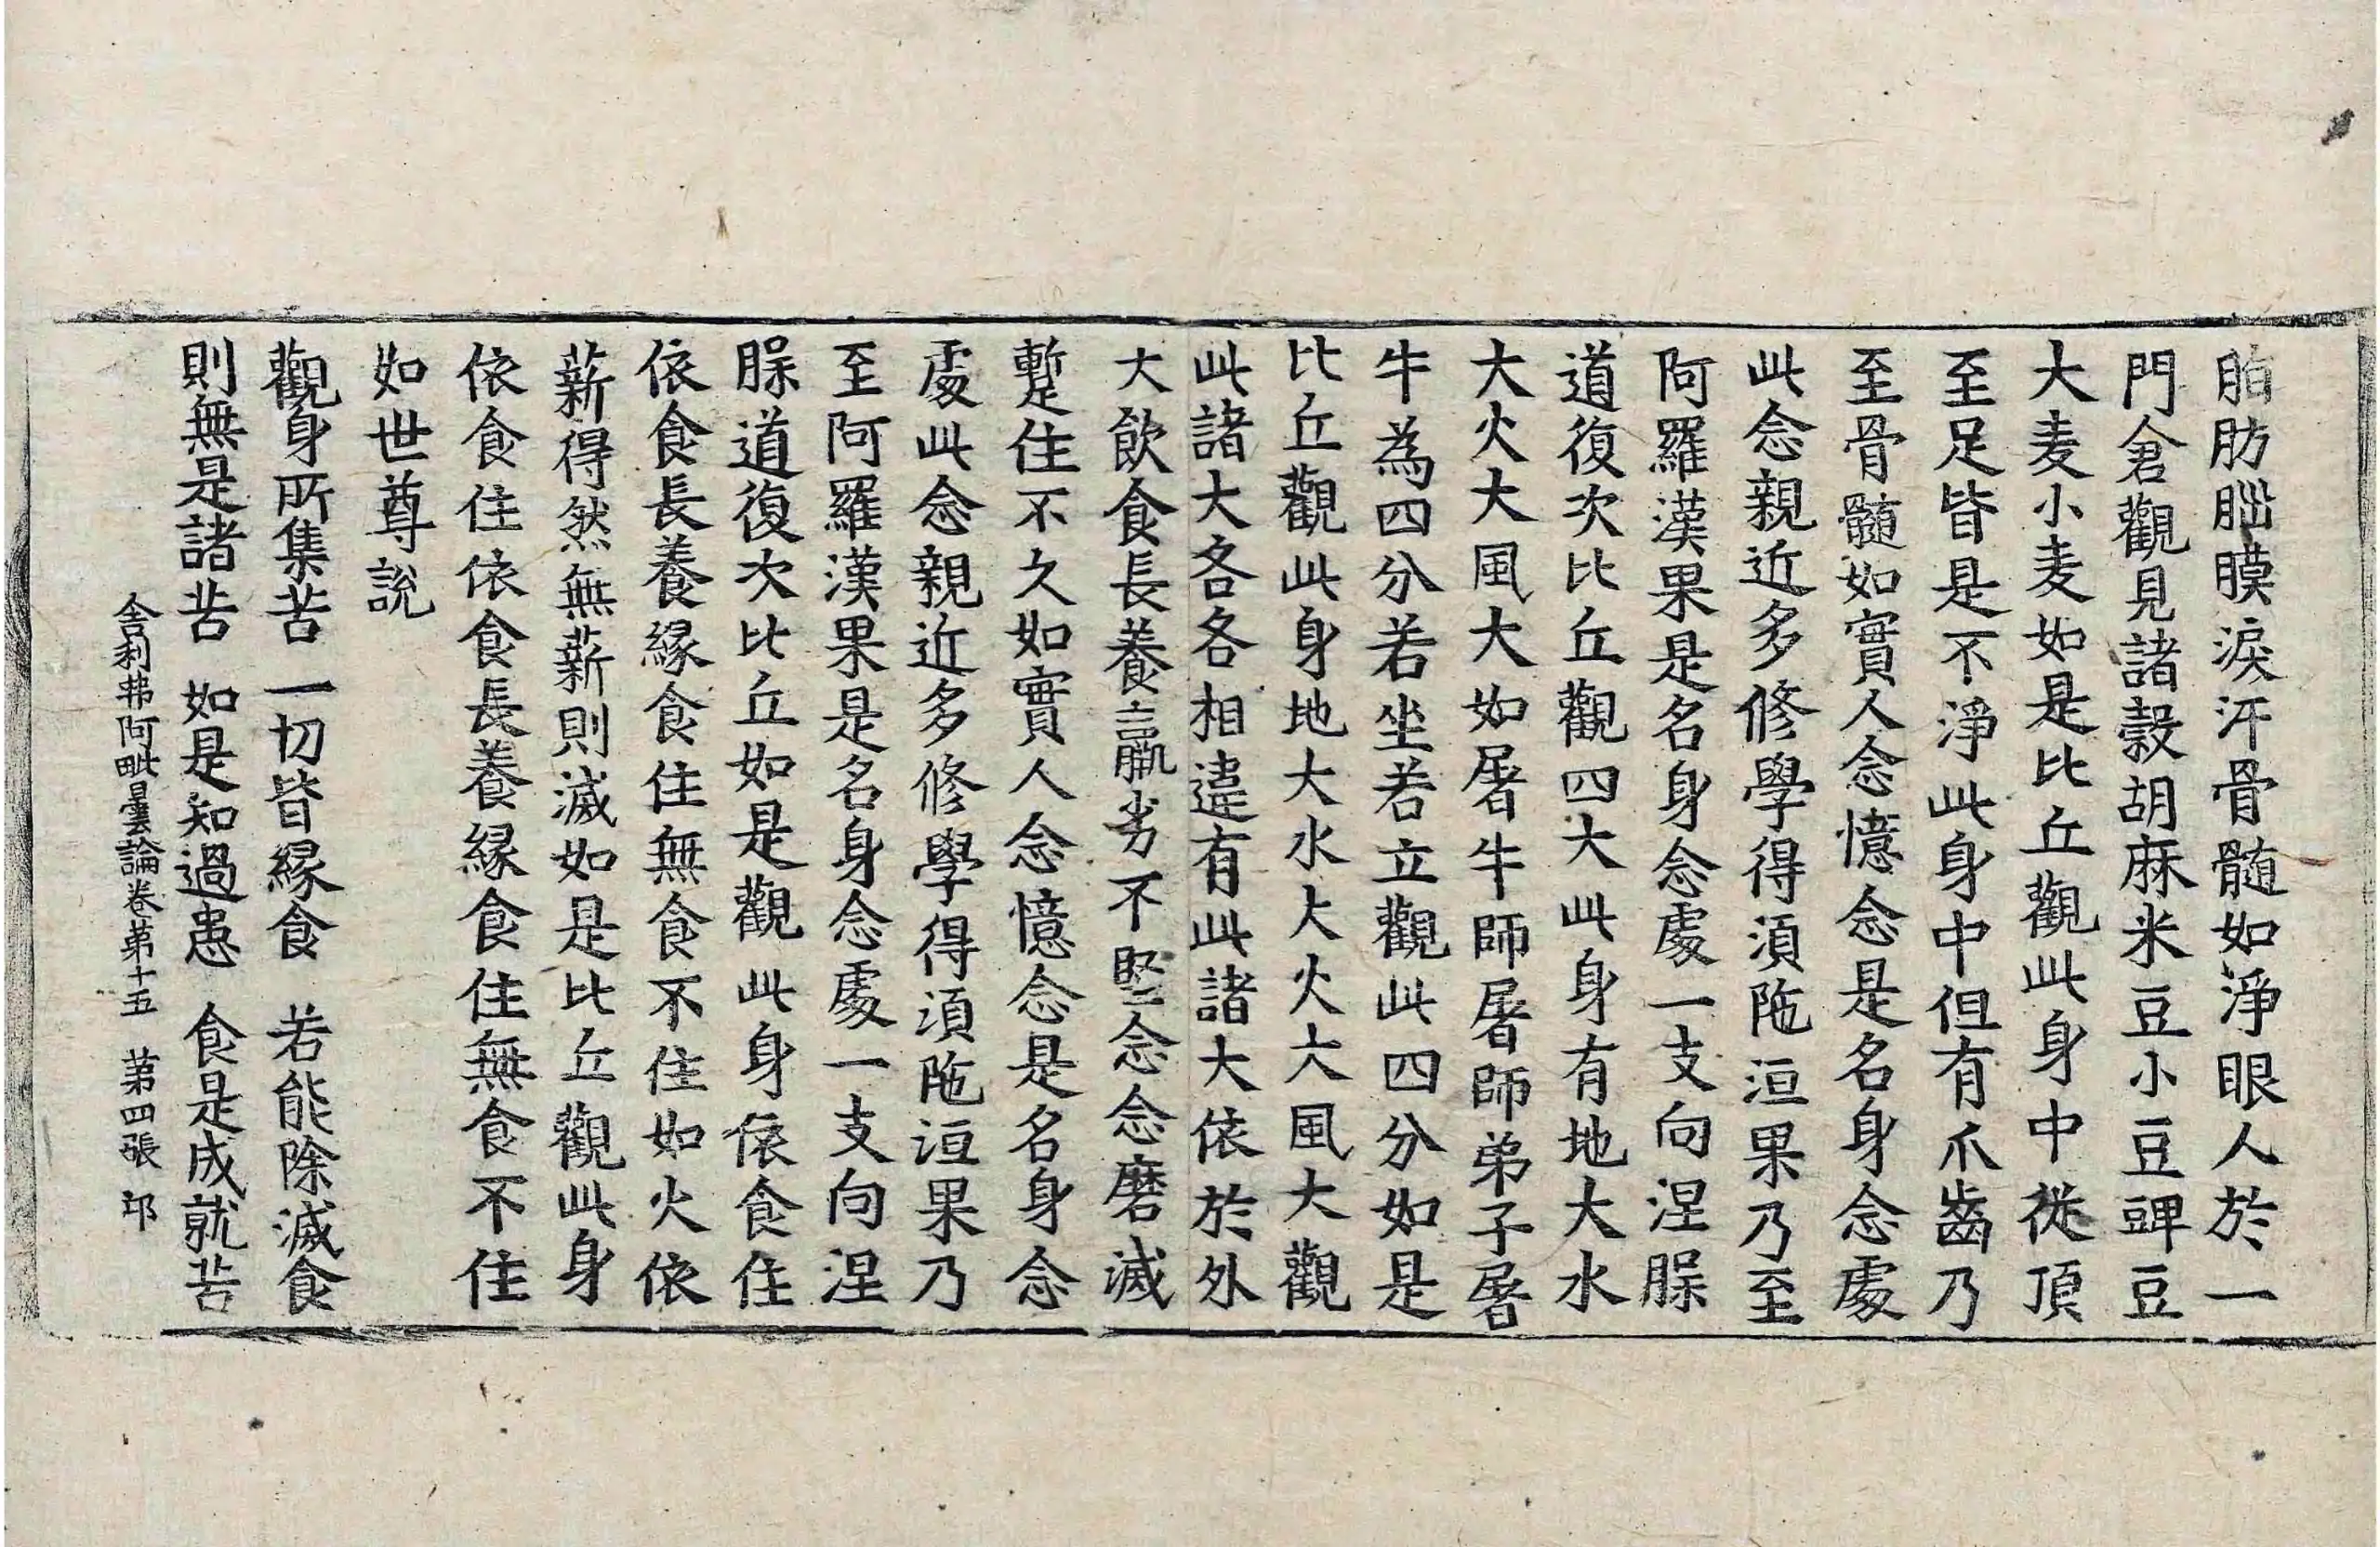 肪䐉膜淚汗骨髓如淨眼人於一
門倉觀見諸穀胡麻米豆小豆豍豆
大麦小麦如是比丘觀此身中從頂
至足皆是不淨此身中但有爪齒乃
至骨髓如實人念憶念是名身念處
此念親近多修學得須陁洹果乃至
阿羅漢果是名身念處一支向涅䏶
道復次比丘觀四大此身有地大水
大火大風大如屠牛師屠師弟子屠
牛為四分若坐若立觀此四分如是
比丘觀此身地大水大火大風大觀
此諸大各各相違有此諸大依於外
大飲食長養羸劣不堅念念磨滅
蹔住不久如實人念憶念是名身念
處此念親近多修學得須陁洹果乃
至阿羅漢果是名身念處一支向涅
䏶道復次比丘如是觀此身依食住
依食長養緣食住無食不住如火依
薪得然無薪則滅如是比丘觀此身
依食住依食長養緣食住無食不住
如世尊說
觀身所集苦 一切皆緣食 若能除滅食
則無是諸苦 如是知過患 食是成就苦
舍利弗阿毗曇論卷第十五 第四張 卭